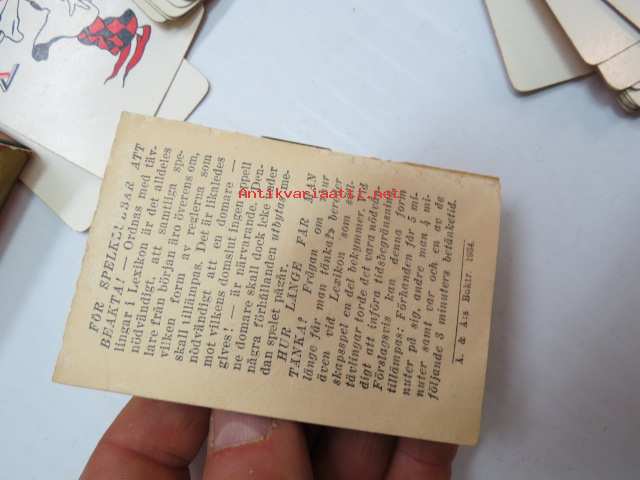 FÖR SPELKLUBBAR ATT
BEAKTA! — Ordnas med täv-
lingar i Lexikon är det alldeles
nödvändigt, att samtliga spe-
lare från början äro överens om,
vilken form av reglerna som
skall tillämpas. Det är likaledes
nödvändigt att en domare —
mot vilkens domslut ingen appell
gives! — är närvarande. Den-
ne domare skall dock icke under
några förhållanden utbytas me-
dan spelet pågår.
HUR LÄNGE FÅR MAN
TÄNKA? Frågan om hur
länge får man tänka? bereder
även vid Lexikon som säll-
skapsspel en del bekymmer. Vid
tävlingar torde det vara nödvän-
digt att införa tidsbegränsning.
Förslagsvis kan denna form
tillämpas: Förhanden får 5 mi-
nuter på sig, andre man 4 mi-
nuter samt var och en av de
följande 3 minuters betänketid.
A. & A:s Boktr. 1934.
Antikvariaatti.net